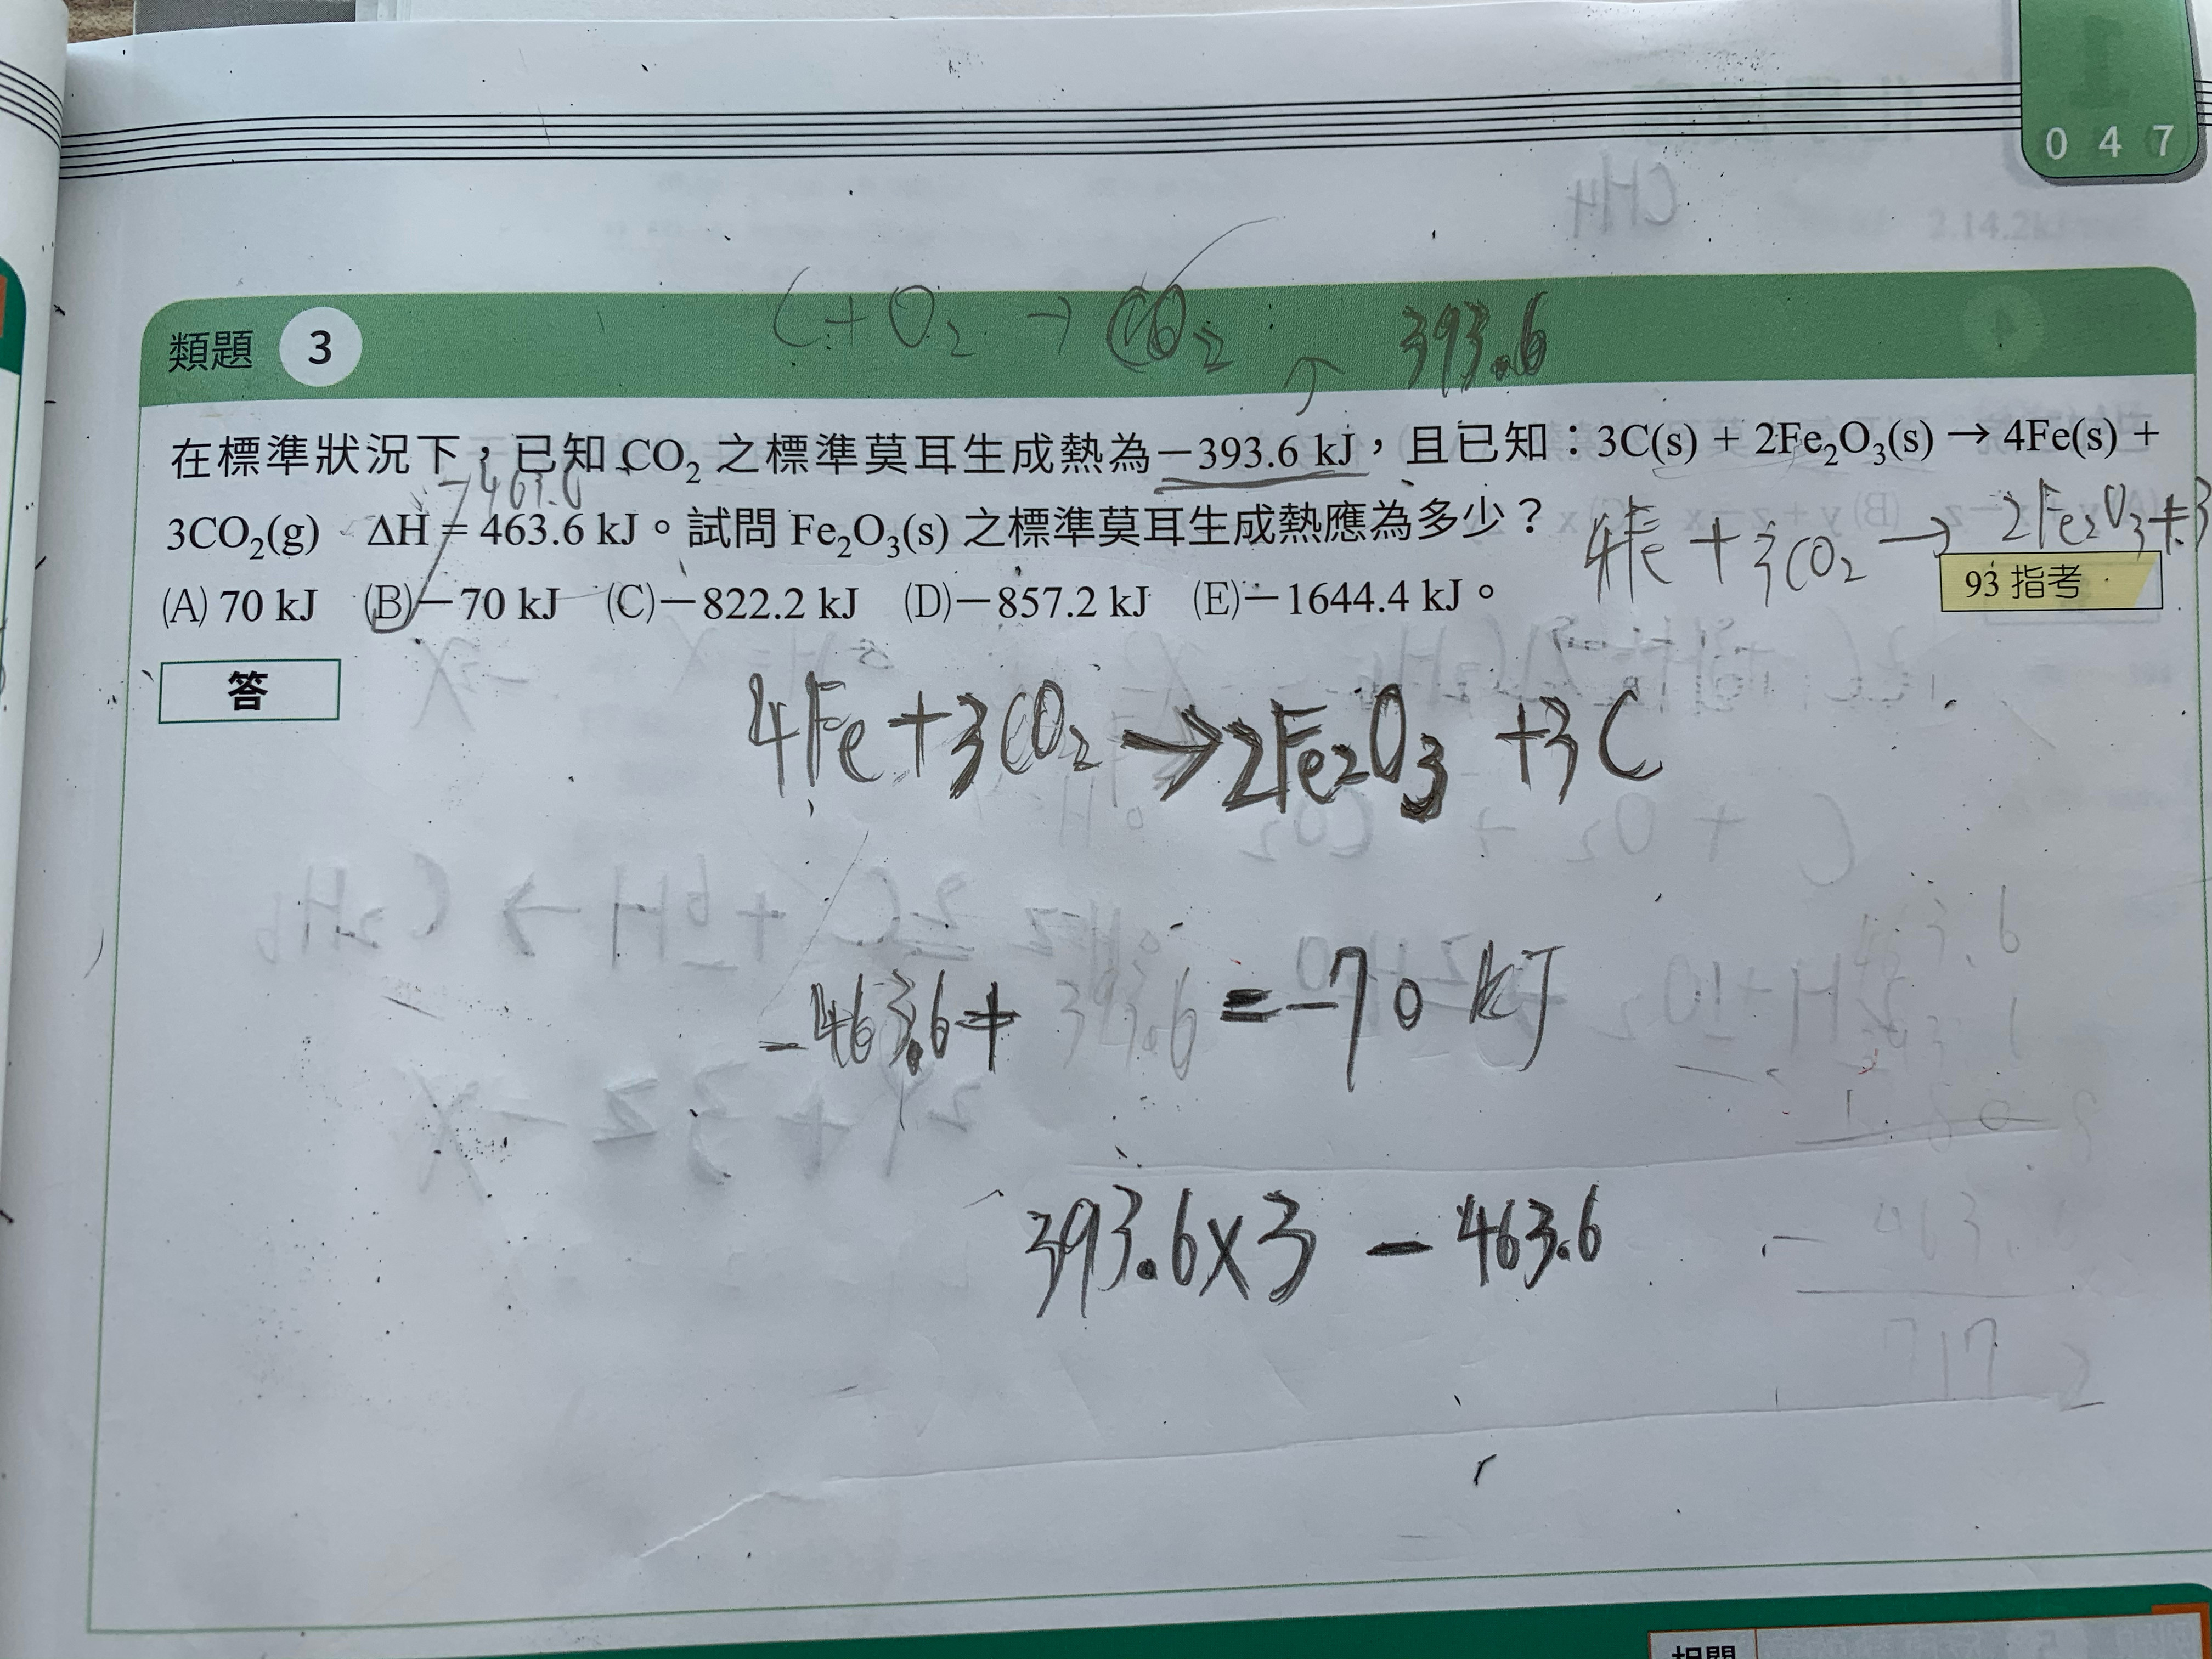 1
047
C+O₂ → CO₂ 393.6
類題 3
在標準狀況下，已知 CO₂ 之標準莫耳生成熱為－393.6 kJ，且已知：3C(s) + 2Fe₂O₃(s) → 4Fe(s) +
-463.6
3CO₂(g) ΔH = 463.6 kJ。試問 Fe₂O₃(s) 之標準莫耳生成熱應為多少？
4Fe + 3CO₂ → 2Fe₂O₃ + 3
(A) 70 kJ (B)－70 kJ (C)－822.2 kJ (D)－857.2 kJ (E)－1644.4 kJ。
93 指考
答
4Fe + 3CO₂ → 2Fe₂O₃ + 3C
-463.6 + 393.6 = -70 kJ
393.6×3 - 463.6
相關